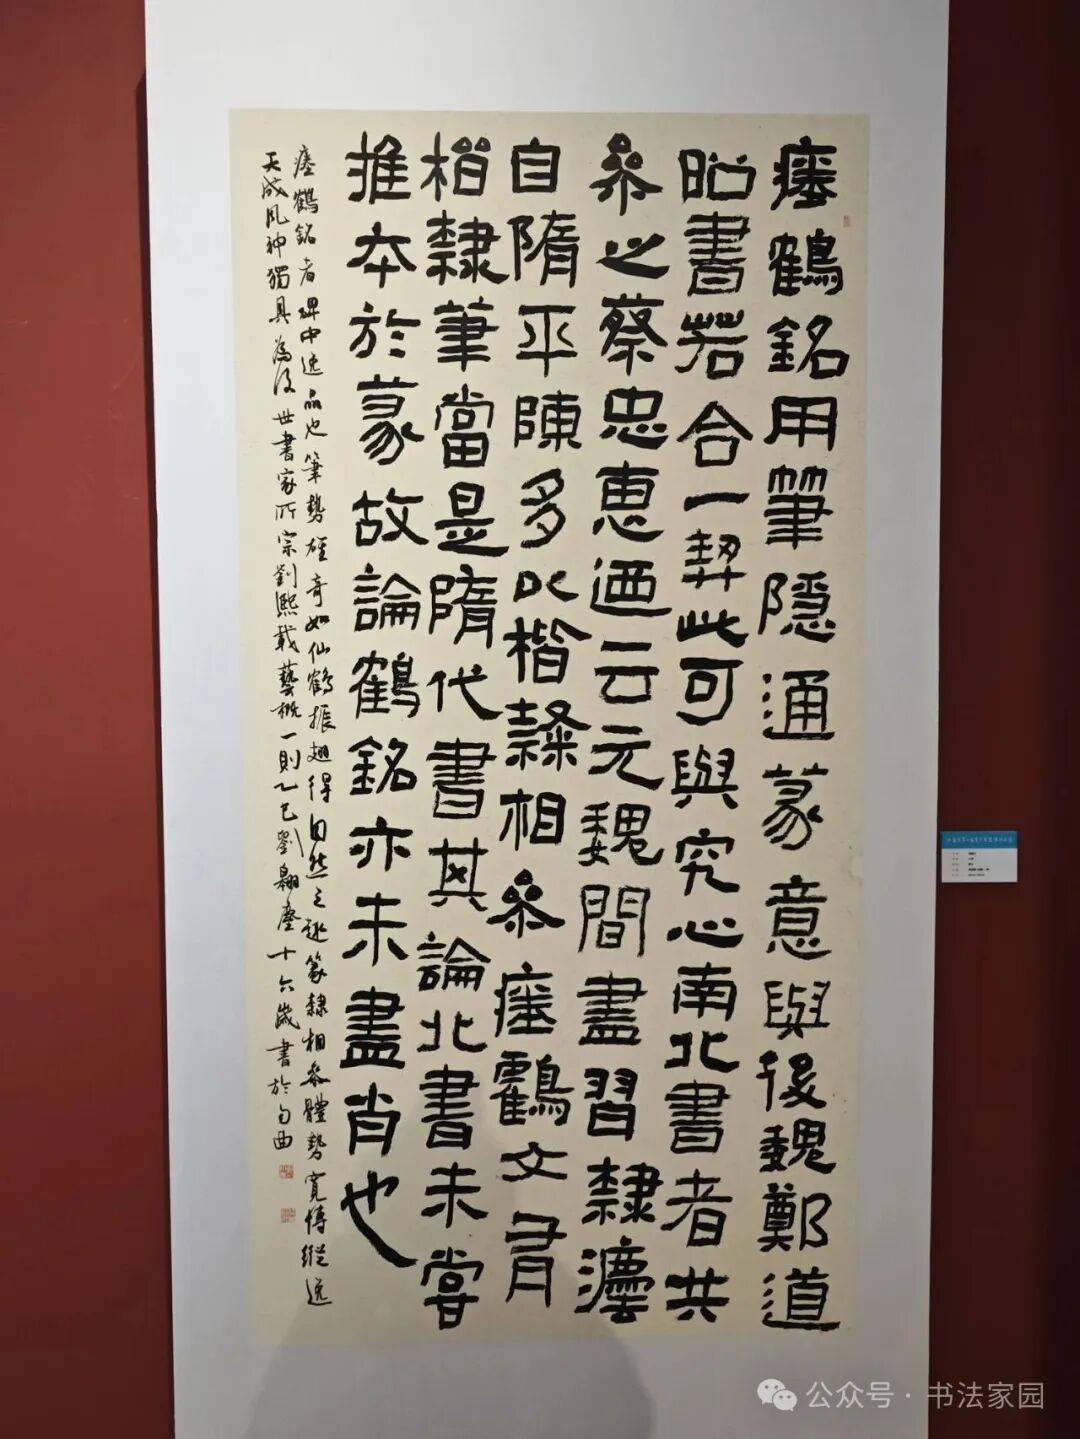 瘞鶴銘用筆隱通篆意與後魏鄭道
昭書若合一契此可與究心南北書者共
參之蔡忠惠迺云元魏間盡習隸灋
自隋平陳多以楷隸相參瘞鶴文有
楷隸筆當是隋代書其論北書未嘗
推本於篆故論鶴銘亦未盡肖也
瘞鶴銘者碑中逸品也筆勢雄奇如仙鶴振翅得自然之趣篆隸相參體勢寬博縱逸
天成風神獨具為後世書家所宗劉熙載藝概一則乙巳劉翱塵十六歲書於句曲
公众号·书法家园